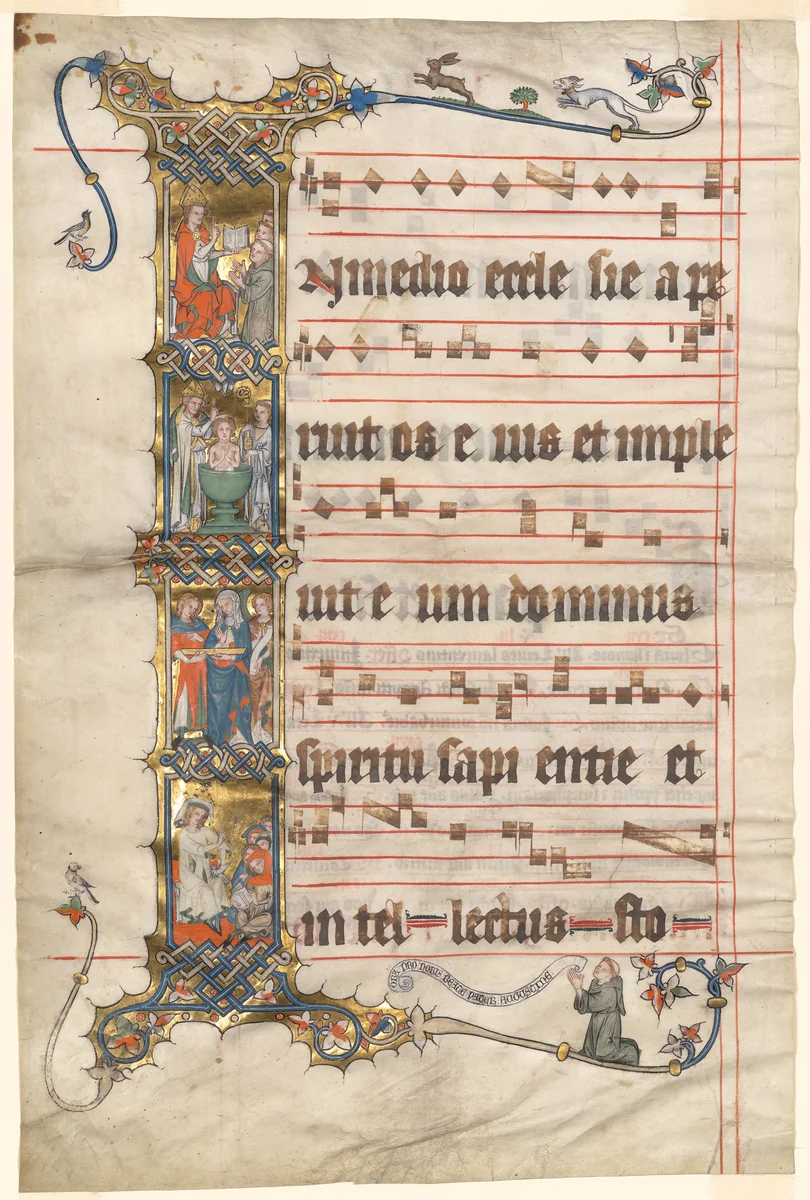 N medio eccle sie a pe
ruit os e ius et imple
uit e um dominus
spiritu sapi entie et
in tel lectus sto
ORA PRO NOBIS BEATE PATER AUGUSTINE